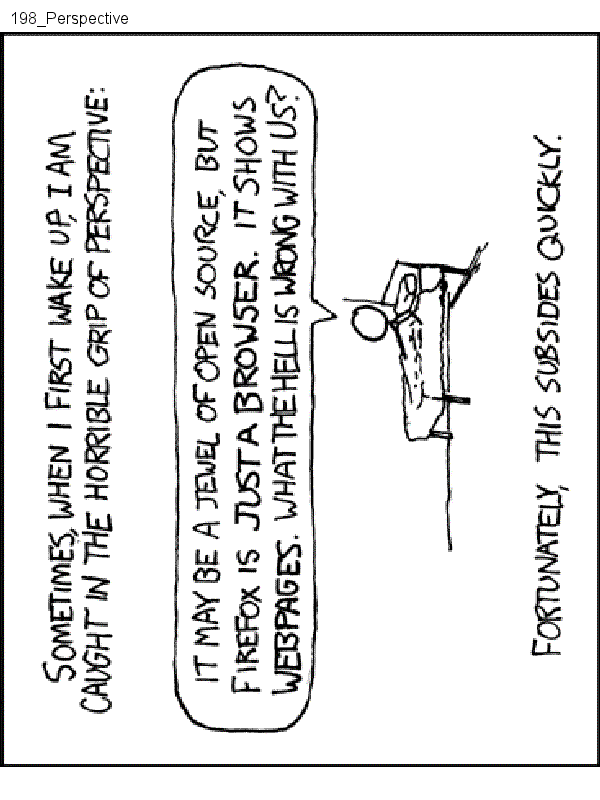 198_Perspective
SOMETIMES, WHEN I FIRST WAKE UP, I AM
CAUGHT IN THE HORRIBLE GRIP OF PERSPECTIVE:
IT MAY BE A JEWEL OF OPEN SOURCE, BUT
FIREFOX IS JUST A BROWSER. IT SHOWS
WEBPAGES. WHAT THE HELL IS WRONG WITH US?
FORTUNATELY, THIS SUBSIDES QUICKLY.